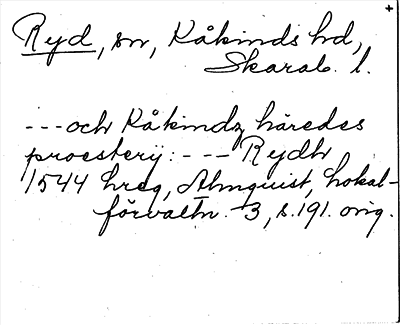 Ryd, sn, Kåkinds hd,
Skarab. l.
---och Kåkindz häredes
proesterij: --- Rydh
1544 hreg, Almquist, Lokal-
förvaltn. 3, s. 191. orig.